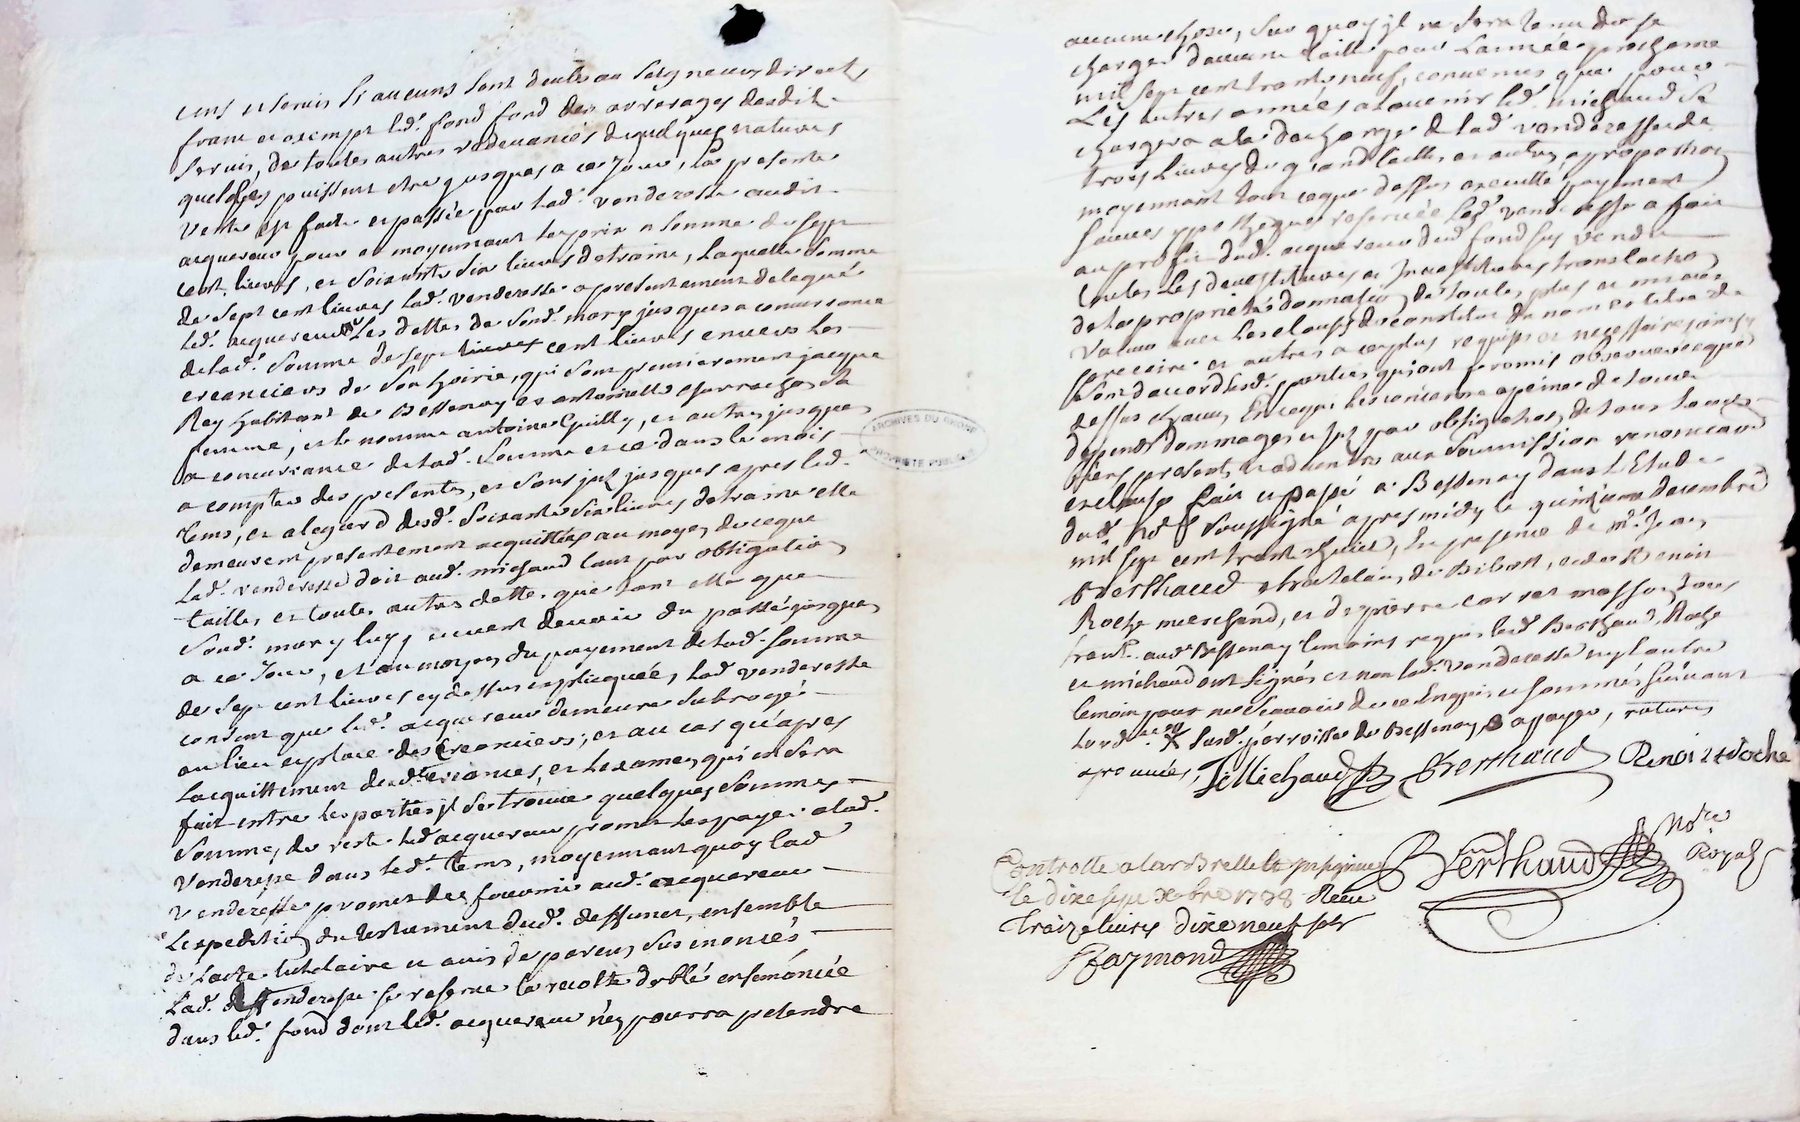 cens et servis sy aucuns sont deubs au seigneur direct,
franc et exempt led. fond des arrerages desdit
servis, de toutes autres redevances de quelques natures
quelles puissent etre jusques a ce jour, la presente
vente est faite et passée par lad. venderesse audit
acquereur pour et moyennant le prix et somme de sept
cent livres, et soixante six livres detraine, laquelle somme
de sept cent livres lad. venderesse a presentement delegué
led. acquereur les dettes de sond. mary jusques a concurrance
de lad. somme de sept livres cent livres envers les
creanciers de son hoirie, qui sont premierement jacque
Rey habitant de Bessenay et antoinette sa
femme, et le nommé antoine Guilly, et autres jusques
a concurrance de lad. somme et ce dans le mois
a compter des presentes, et sans jusques apres led.
tems, et alegard desd. soixante six livres detraine elle
demeurent presentement acquittés au moyen de ceque
lad. venderesse doit aud. michaud tant par obligation
tailles, et toutes autres dettes que tant elle que
sond. mary luy peuvent devoir du passé jusques
a ce jour, et au moyen du payement de lad. somme
de sept cent livres cy dessus explicquée, lad. venderesse
consent que led. acquereur demeure subrogé
au lieu et place des Creanciers, et au cas qu'apres
lacquittement desd. creances, et lexamen qui en sera
fait entre les parties jl se trouve quelques sommes
somme, de reste led. acquereur promet les payer a lad.
Venderesse dans led. tems, moyennant quoy lad.
venderesse promet de fournir aud. acquereur
lexpedition du testament dud. deffunct, ensemble
de lacte tutelaire et avis de parens sus enoncés
Lad. venderesse se reserve la recolte de blé ensemencée
dans led. fond dont led. acquereur n'en pourra pretendre
aucune chose, sur quoy jl ne sera tenu de se
charger daucune taille pour lannée prochaine
mil sept cent trente neuf, convenus que pour
Les autres années a lavenir led. michaud se
chargera a la decharge de lad. venderesse de
trois livres de grand taille et autres a proportion
moyennant tout ceque dessus execute payement
sauves ypotheques reservée lad. venderesse a fait
au profit dud. acquereur dud. fond sus vendu
toutes les devestitures et Investitures translation
de la propriété domaine de toutes plus et moins
value avec les clauses de constitut de nom et titre de
precaire et autres a ce plus requises et necessaires ainsy
sont daccord lesd. parties qui ont promis observer ceque
dessus chacun En ceque les concerne a peine de tous
depens dommages et par obligation de tous leurs
biens presents et advenir aux soumission renonciaon
et clause fait et passé a Bessenay dans L'Etude
dud. no.re soussigné apres midy le quinzieme decembre
mil sept cent trente huict, En presence de m.e Jean
Berthaud chatelain de Bibost, et de Benoit
Roche marchand, et de pierre masson tous
aud. Bessenay temoins requis led. Berthaud, Roche
et michaud ont signés et non lad. venderesse ny lautre
temoin pour ne scavoir de ce Enquis et sommés suivant
Lord.ce lad. parroisse de Bessenay, ratures
aprouvées, Michaud Berthaud Benoit Roche
Berthaud No.re
Royal
Controlle a larBrelle
le dixe sept Xbre 1738 Receu
traize livres dixe neuf sols
Raymond
ARCHIVES DU RHONE
PROPRIETE PUBLIQUE